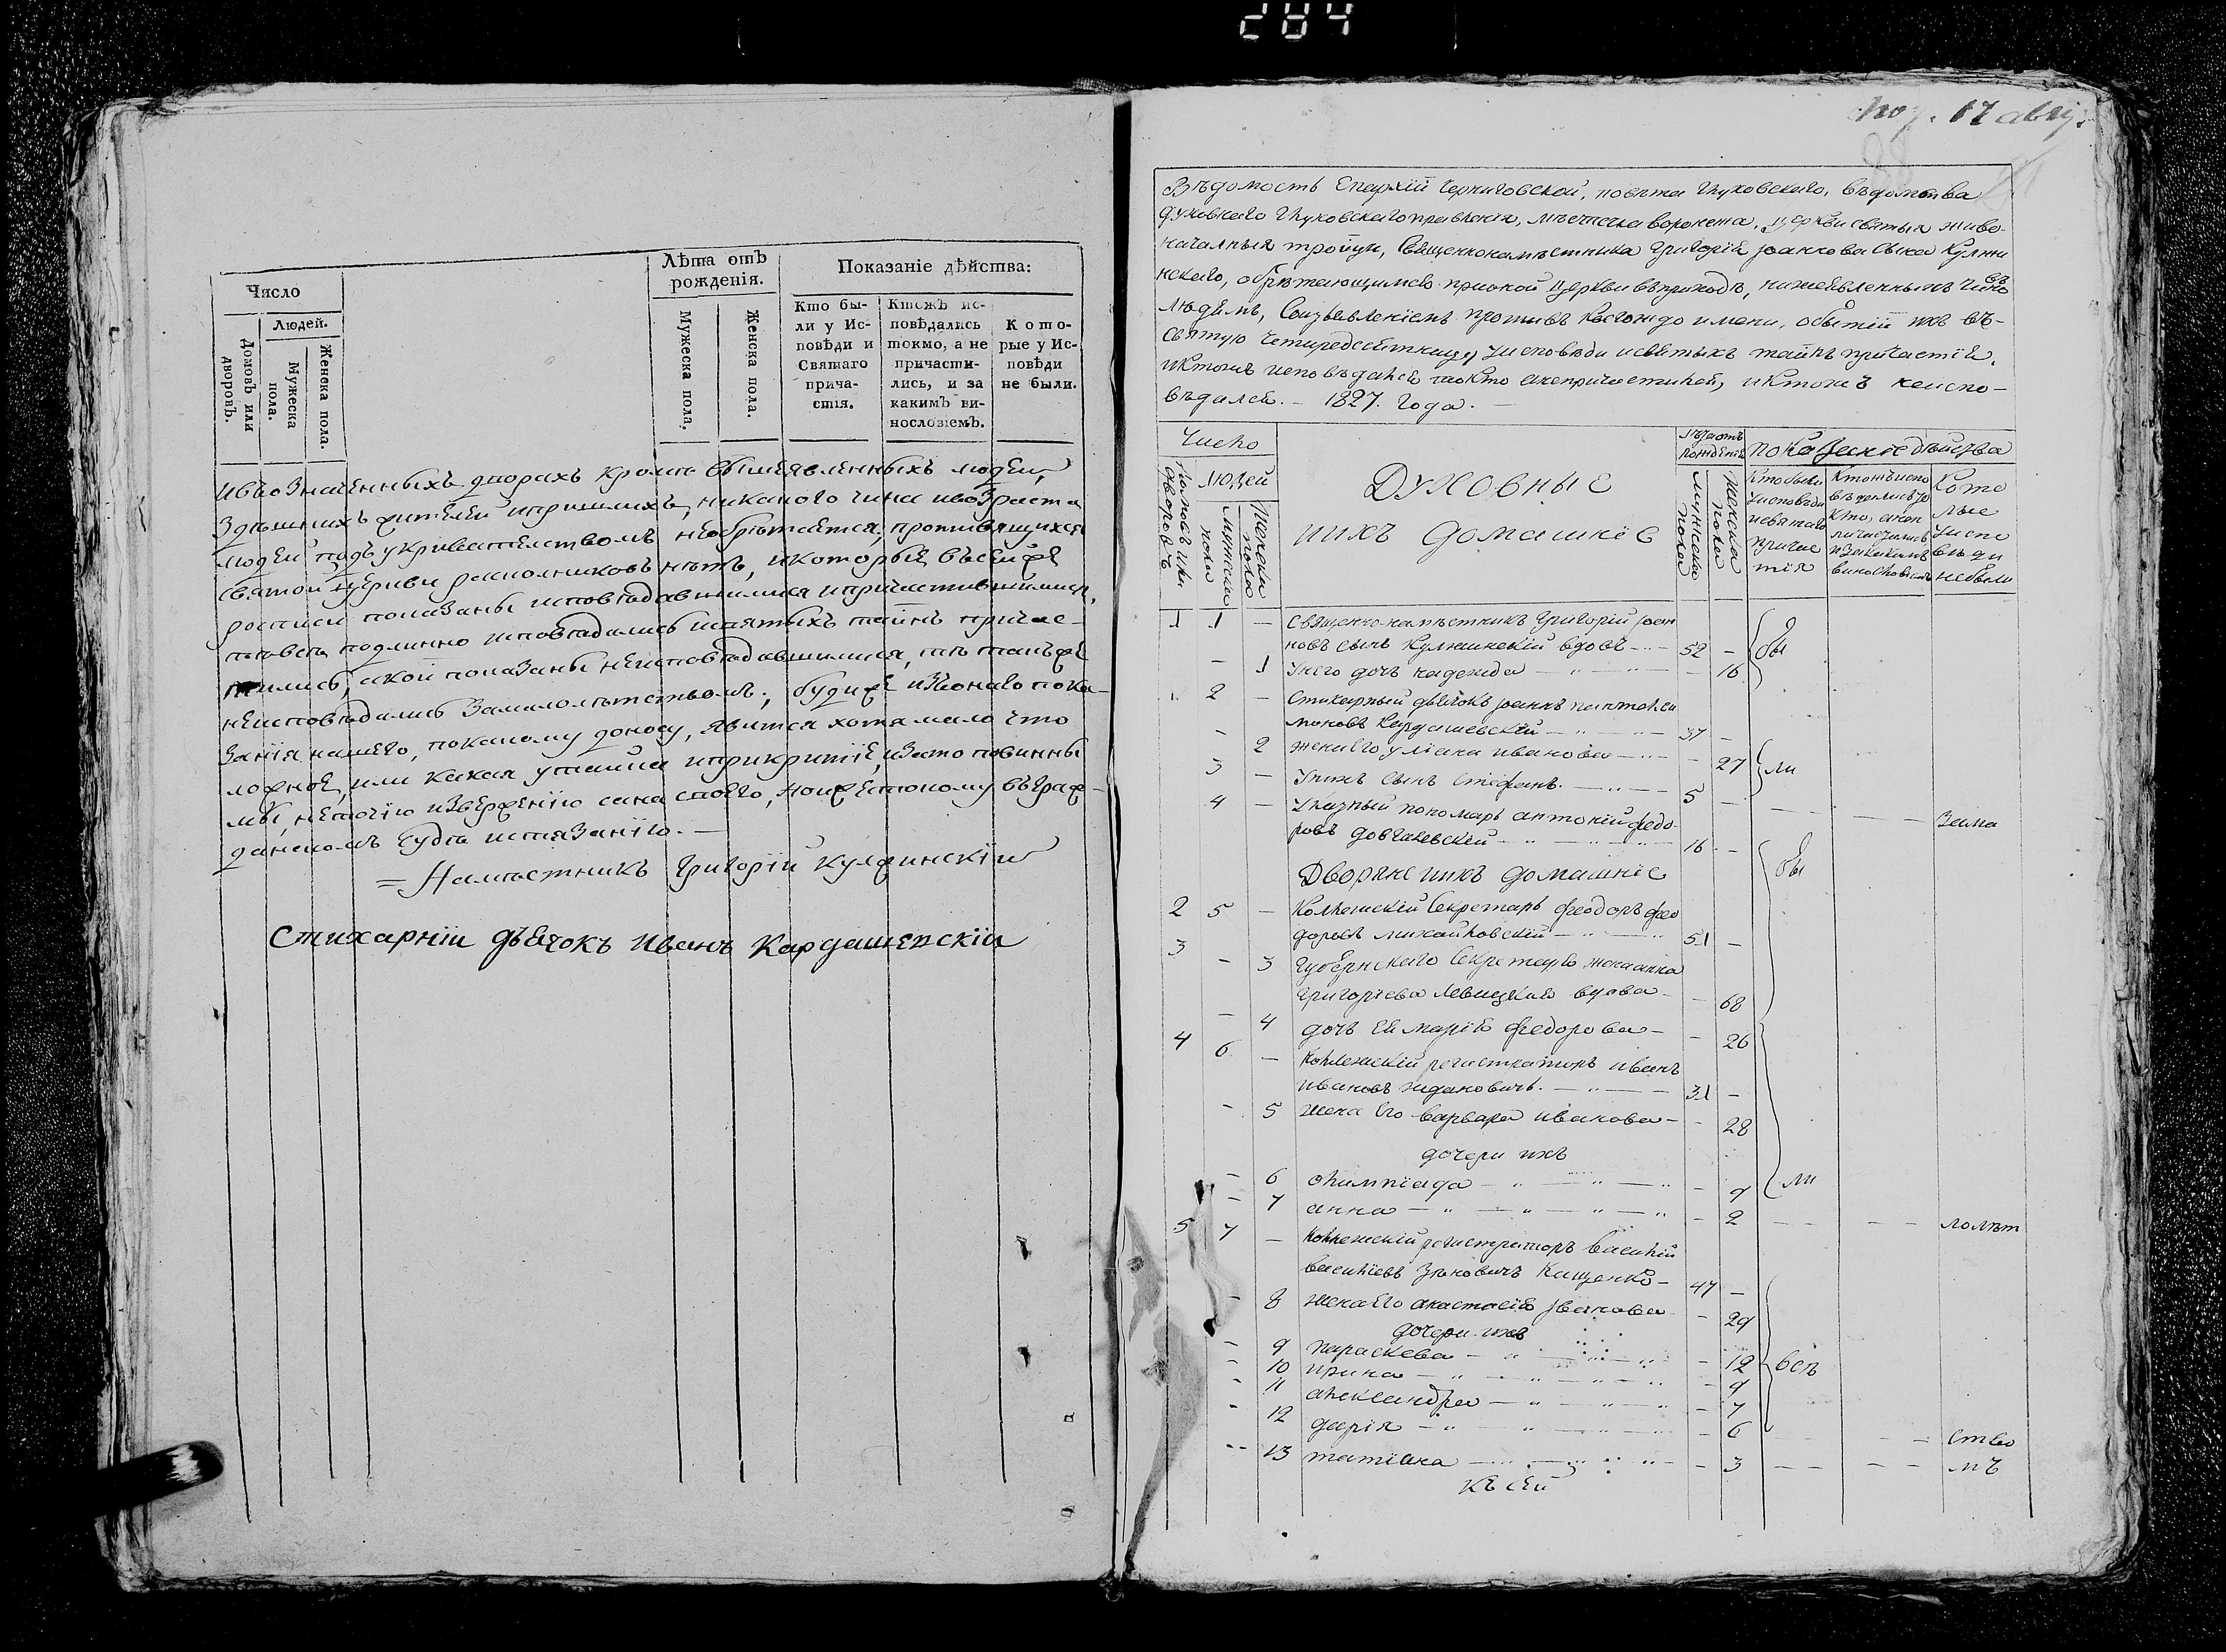 284
17 авгу.
Число
Людей.
Домовъ или дворовъ.
Мужеска пола.
Женска пола.
Лѣта отъ рожденія.
Мужеска пола.
Женска пола.
Показаніе дѣйства:
Кто бы-
ли у Ис-
повѣди и
Святаго
прича-
стія.
Ктожъ ис-
повѣдались
токмо, а не
причасти-
лись, и за
какимъ ви-
нословіемъ.
Кото-
рые у Ис-
повѣди
не были.
ивъ означенныхъ дворахъ кромѣ вышеявленныхъ людей,
здешнихъ жителей ипришлихъ, никакого чина ивозраста
людей подъ укривателствомъ необрѣтается; противящихся
святой церкви расколниковъ нѣтъ, икоторые въ сей же
росписи показаны исповѣдавшимися ипричастившимися,
подлинно исповѣдались исвятыхъ тайнъ причас-
тились, акои показаны неисповѣдавшимися, тѣ такъже
неисповѣдались замалолѣтствомъ; будиже изъонаго пока-
занія нашего, покакому доносу, явится хотя мало что
ложное, или какая утайка иприкритіе, изато повинны
мы, неточію изверженію сана своего, ноижестокому въграж-
данскомъ судѣ истязанію. —
= Намѣстникъ Григорій Кулжинскій
Стихарній дьячокъ Иванъ Кардашевскій
Вѣдомость Епархїи Черниговской, повѣта Глуховскаго, вѣдомства
духовнаго Глуховскаго правленія, мѣстечка воронежа, церкви святыя живо-
началныя тройци, Священнонамѣстника Григорія Іоаннова сына Кулжи
нскаго, обрѣтающимся при оной церкви въприходѣ, нижеявленнымъ чино
людемъ, Соизъявленіемъ противъ коегождо имени, обытїи ихъ въ-
святую четиредесятницу уисповѣди исвятыхъ тайнъ причастїя,
иктожъ исповѣдался токмо анепричастился, иктожъ неиспо-
вѣдался. — 1827. Года. —
Число
Людей
Домовъ или дворовъ
Мужеска пола
Женска пола
Духовные
иихъ домашнїе
Лѣта отъ рожденїя
Мужеска пола
Женска пола
показанїе дѣйства
Кто были уисповѣди исвятаго причастїя
Ктожъ исповѣдались токмо, анепричастились изакакимъ винословіемъ
Которые уисповѣди небыли
1 1 — Священнонамѣстникъ Григорій Іоан
новъ сынъ Кулжинскій вдовъ — 52 — бы
— 1 Унего дочь надежда — — 16
2 — Стихарный дьячокъ Іоаннъ пантелеи
моновъ Кардашевскій — 37 —
— 2 жена его уліана иванова — — 27 ли
3 — Унихъ сынъ Стефанъ. — 5 — — — Зама
4 — Указный пономарь антоній федо-
ровъ довгалевскій — 16 — бы
Дворяне иихъ домашнїе
2 5 — Колежскій Секретарь феодоръ фео
доровъ михайловскій — 51 —
3 — 3 Губернскаго Секретаря жена анна
Григорїева Левицкаго вдова — — 68
— 4 дочь ея марїя федорова — — 26
4 6 — Колежскій регистраторъ иванъ
ивановъ ждановичъ. — 31 —
— 5 жена его варвара иванова — — 28
дочери ихъ
— 6 олимпїада — — 9 ли
— 7 анна — — 2 — — лолѣт
5 7 — Колежскій регистраторъ василій
васильевъ Кащенко — 47 —
— 8 жена его анастасїя Іванова — 29
дочери ихъ
— 9 параскева — — 12 всѣ
— 10 ирина — — 9
— 11 александра — — 7
— 12 дарїя — — 6 — — ство
— 13 татїана — — 3 — — мъ
къ сей